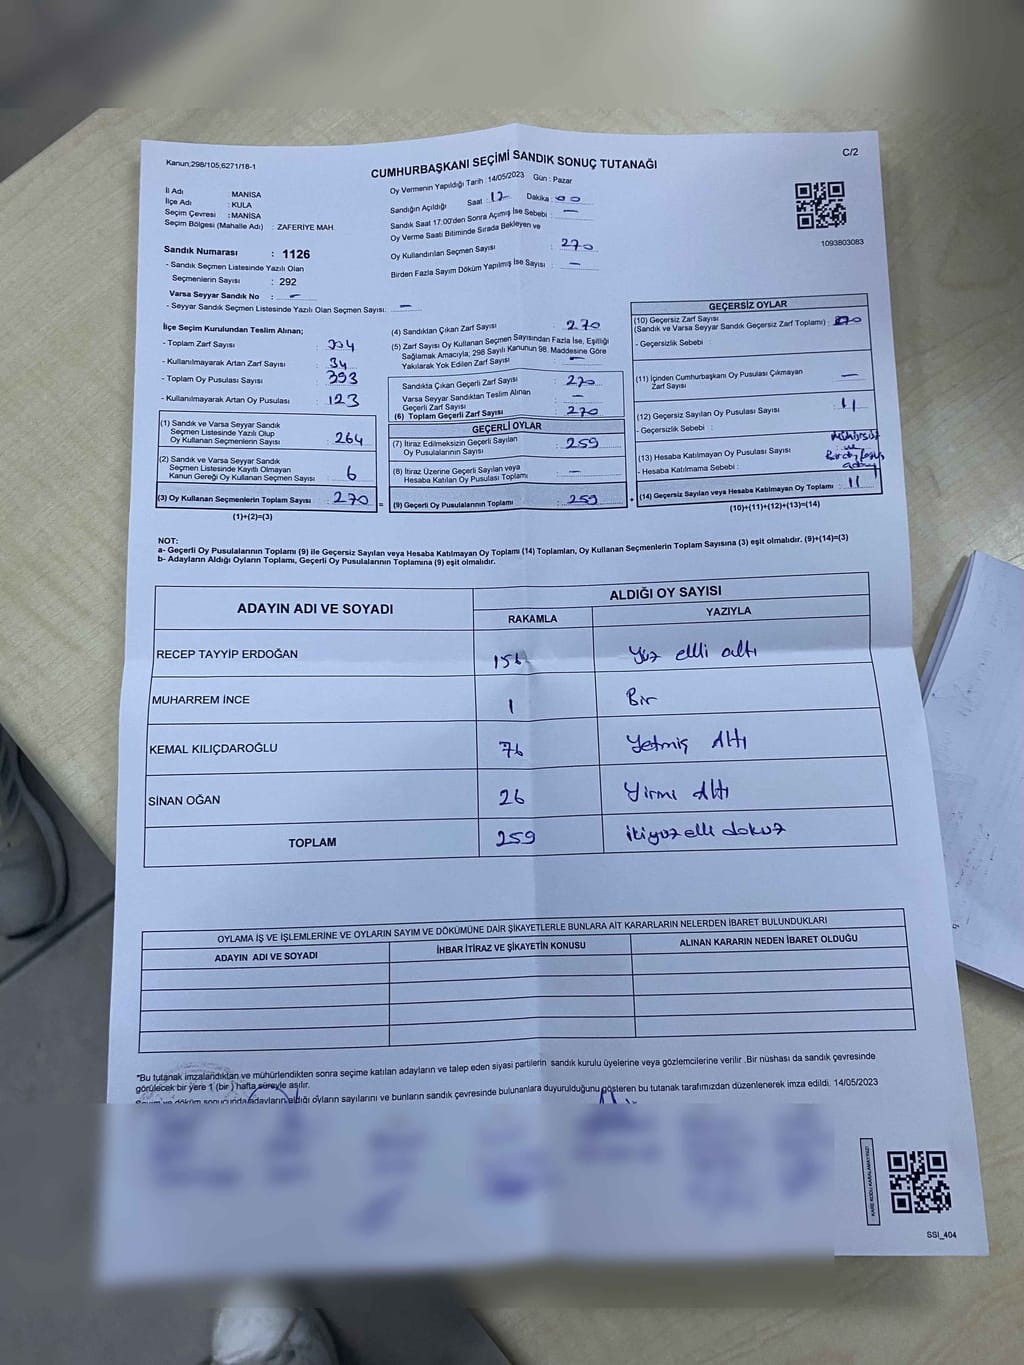 Kanun;298/105,6271/18-1
CUMHURBAŞKANI SEÇİMİ SANDIK SONUÇ TUTANAĞI
C/2
İl Adı : MANİSA
İlçe Adı : KULA
Seçim Çevresi : MANİSA
Seçim Bölgesi (Mahalle Adı) : ZAFERİYE MAH.
Oy Vermenin Yapıldığı Tarih : 14/05/2023 Gün : Pazar
Sandığın Açıldığı Saat : 12 Dakika : 00
Sandık Saat 17:00'den Sonra Açımış İse Sebebi : —
Oy Verme Saati Bitiminde Sırada Bekleyen ve
Oy Kullandırılan Seçmen Sayısı : 270
Birden Fazla Sayım Döküm Yapılmış İse Sayısı : —
1093803083
Sandık Numarası : 1126
- Sandık Seçmen Listesinde Yazılı Olan
Seçmenlerin Sayısı : 292
Varsa Seyyar Sandık No : —
- Seyyar Sandık Seçmen Listesinde Yazılı Olan Seçmen Sayısı: —
İlçe Seçim Kurulundan Teslim Alınan;
- Toplam Zarf Sayısı : 304
- Kullanılmayarak Artan Zarf Sayısı : 34
- Toplam Oy Pusulası Sayısı : 393
- Kullanılmayarak Artan Oy Pusulası : 123
(1) Sandık ve Varsa Seyyar Sandık
Seçmen Listesinde Yazılı Olup
Oy Kullanan Seçmenlerin Sayısı : 264
(2) Sandık ve Varsa Seyyar Sandık
Seçmen Listesinde Kayıtlı Olmayan
Kanun Gereği Oy Kullanan Seçmen Sayısı : 6
(3) Oy Kullanan Seçmenlerin Toplam Sayısı : 270
(1)+(2)=(3)
(4) Sandıktan Çıkan Zarf Sayısı : 270
(5) Zarf Sayısı Oy Kullanan Seçmen Sayısından Fazla İse, Eşitliği
Sağlamak Amacıyla; 298 Sayılı Kanunun 98. Maddesine Göre
Yakılarak Yok Edilen Zarf Sayısı : —
Sandıkta Çıkan Geçerli Zarf Sayısı : 270
Varsa Seyyar Sandıktan Teslim Alınan
Geçerli Zarf Sayısı : —
(6) Toplam Geçerli Zarf Sayısı : 270
GEÇERLİ OYLAR
(7) İtiraz Edilmeksizin Geçerli Sayılan
Oy Pusulalarının Sayısı : 259
(8) İtiraz Üzerine Geçerli Sayılan veya
Hesaba Katılan Oy Pusulası Toplamı : —
= (9) Geçerli Oy Pusulalarının Toplamı : 259
GEÇERSİZ OYLAR
(10) Geçersiz Zarf Sayısı
(Sandık ve Varsa Seyyar Sandık Geçersiz Zarf Toplamı) :
- Geçersizlik Sebebi :
(11) İçinden Cumhurbaşkanı Oy Pusulası Çıkmayan
Zarf Sayısı : —
(12) Geçersiz Sayılan Oy Pusulası Sayısı : 11
- Geçersizlik Sebebi :
(13) Hesaba Katılmayan Oy Pusulası Sayısı :
- Hesaba Katılmama Sebebi :
+ (14) Geçersiz Sayılan veya Hesaba Katılmayan Oy Toplamı : 11
(10)+(11)+(12)+(13)=(14)
NOT:
a- Geçerli Oy Pusulalarının Toplamı (9) ile Geçersiz Sayılan veya Hesaba Katılmayan Oy Toplamı (14) Toplamları, Oy Kullanan Seçmenlerin Toplam Sayısına (3) eşit olmalıdır. (9)+(14)=(3)
b- Adayların Aldığı Oyların Toplamı, Geçerli Oy Pusulalarının Toplamına (9) eşit olmalıdır.
ADAYIN ADI VE SOYADI
ALDIĞI OY SAYISI
RAKAMLA YAZIYLA
RECEP TAYYİP ERDOĞAN 156 Yüz elli altı
MUHARREM İNCE 1 Bir
KEMAL KILIÇDAROĞLU 76 Yetmiş Altı
SİNAN OĞAN 26 Yirmi Altı
TOPLAM 259 ikiyüz elli dokuz
OYLAMA İŞ VE İŞLEMLERİNE VE OYLARIN SAYIM VE DÖKÜMÜNE DAİR ŞİKAYETLERLE BUNLARA AİT KARARLARIN NELERDEN İBARET BULUNDUKLARI
ADAYIN ADI VE SOYADI İHBAR İTİRAZ VE ŞİKAYETİN KONUSU ALINAN KARARIN NEDEN İBARET OLDUĞU
*Bu tutanak imzalandıktan ve mühürlendikten sonra seçime katılan adayların ve talep eden siyasi partilerin sandık kurulu üyelerine veya gözlemcilerine verilir .Bir nüshası da sandık çevresinde
görülecek bir yere 1 (bir ) hafta süreyle asılır.
Sayım ve döküm sonucunda adayların aldığı oyların sayılarını ve bunların sandık çevresinde bulunanlara duyurulduğunu gösteren bu tutanak tarafımızdan düzenlenerek imza edildi. 14/05/2023
KARE KODU KARALAMAYINIZ!
SSI_404